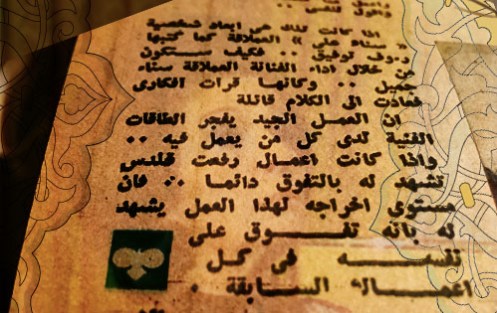 وأقول لنفسي ..
اذا كانت تلك هى ابعاد شخصية
« سناء على » العملاقة كما كتبها
رءوف توفيق .. فكيف ستكون
من خلال اداء الفنانة العملاقة سناء
جميل .. وكأنها قرأت أفكارى
فعادت الى الكلام قائلة
ان العمل الجيد يفجر الطاقات
الفنية لدى كل من يعمل فيه ..
واذا كانت أعمال رفعت قلدس
تشهد له بالتفوق دائما .. فان
مستوى اخراجه لهذا العمل يشهد
له بأنه تفوق على
نفسه فى كل
أعماله السابقة .